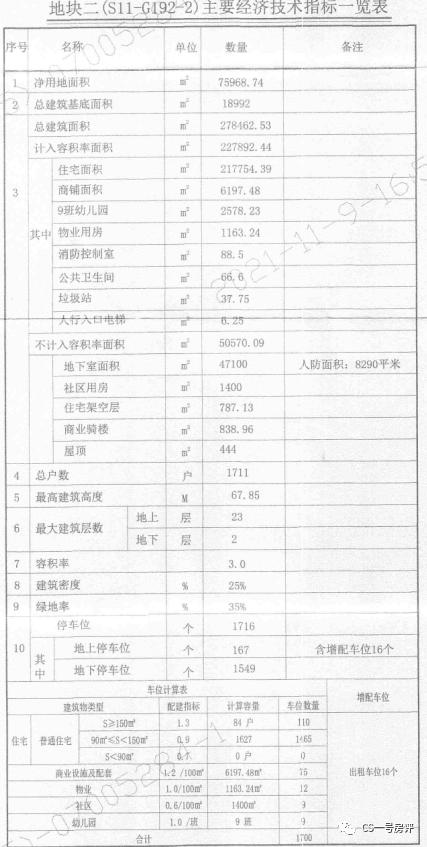 地块二(S11-G192-2)主要经济技术指标一览表
序号 名称 单位 数量 备注
1 净用地面积 m² 75968.74
2 总建筑基底面积 m² 18992
3 总建筑面积 m² 278462.53
计入容积率面积 m² 227892.44
其中 住宅面积 m² 217754.39
商铺面积 m² 6197.48
9班幼儿园 m² 2578.23
物业用房 m² 1163.24
消防控制室 m² 88.5
公共卫生间 m² 66.6
垃圾站 m² 37.75
人行入口电梯 m² 6.25
不计入容积率面积 m² 50570.09
地下室面积 m² 47100 人防面积：8290平米
社区用房 m² 1400
住宅架空层 m² 787.13
商业骑楼 m² 838.96
屋顶 m² 444
4 总户数 户 1711
5 最高建筑高度 M 67.85
6 最大建筑层数 地上 层 23
地下 层 2
7 容积率 3.0
8 建筑密度 % 25%
9 绿地率 % 35%
10 停车位 个 1716
其中 地上停车位 个 167 含增配车位16个
地下停车位 个 1549
车位计算表 增配车位
建筑物类型 配建指标 计算容量 车位数量
住宅 普通住宅 S≥150㎡ 1.3 84 户 110
90㎡≤S<150㎡ 0.9 1627 1465
S<90㎡ 0 户 0
商业设施及配套 1.2 /100㎡ 6197.48㎡ 75 出租车位16个
物业 1.0/100㎡ 1163.24㎡ 12
社区 0.6/100㎡ 1400㎡ 9
幼儿园 1.0 /班 9 班 9
合计 1700
2021-11-9-16:5
07005284-1
CS一号房评